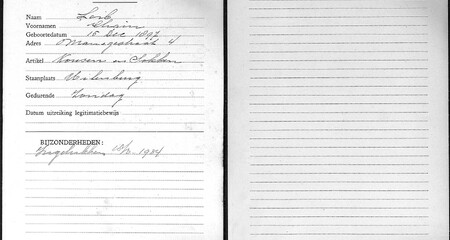 Naam Leib
Voornamen Chaim
Geboortedatum 15 Dec 1897
Adres Manegestraat 4
Artikel Kousen en Sokken
Staanplaats Uilenburg
Gedurende Zondag
Datum uitreiking legitimatiebewijs
BIJZONDERHEDEN:
Ingetrokken 1934